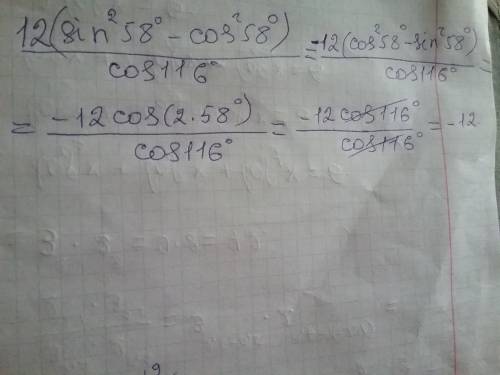 12(sin²58° - cos²58°) / cos116° = -12(cos²58° - sin²58°) / cos116° =
= -12cos(2·58°) / cos116° = -12cos116° / cos116° = -12